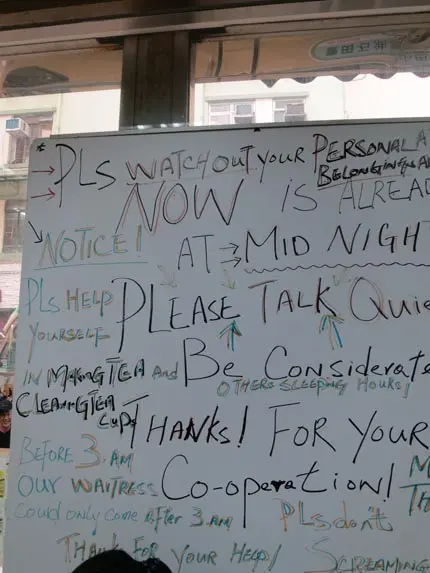 → PLS WATCH OUT your PERSONAL A
→ BELONGINGS A
NOW IS ALREA
NOTICE! AT → MID NIGH
PLs HELP YOURSELF
PLEASE TALK Quie
IN MAKING TEA AND
CLEANING TEA CUPS
Be Considerate
OTHERS SLEEPING HOURS!
THANKS! FOR YOUR
Co-operation!
BEFORE 3 AM
OUR WAITRESS
Could only come AFTER 3 AM
THANK FOR YOUR HELP!
PLs don't
SCREAMING